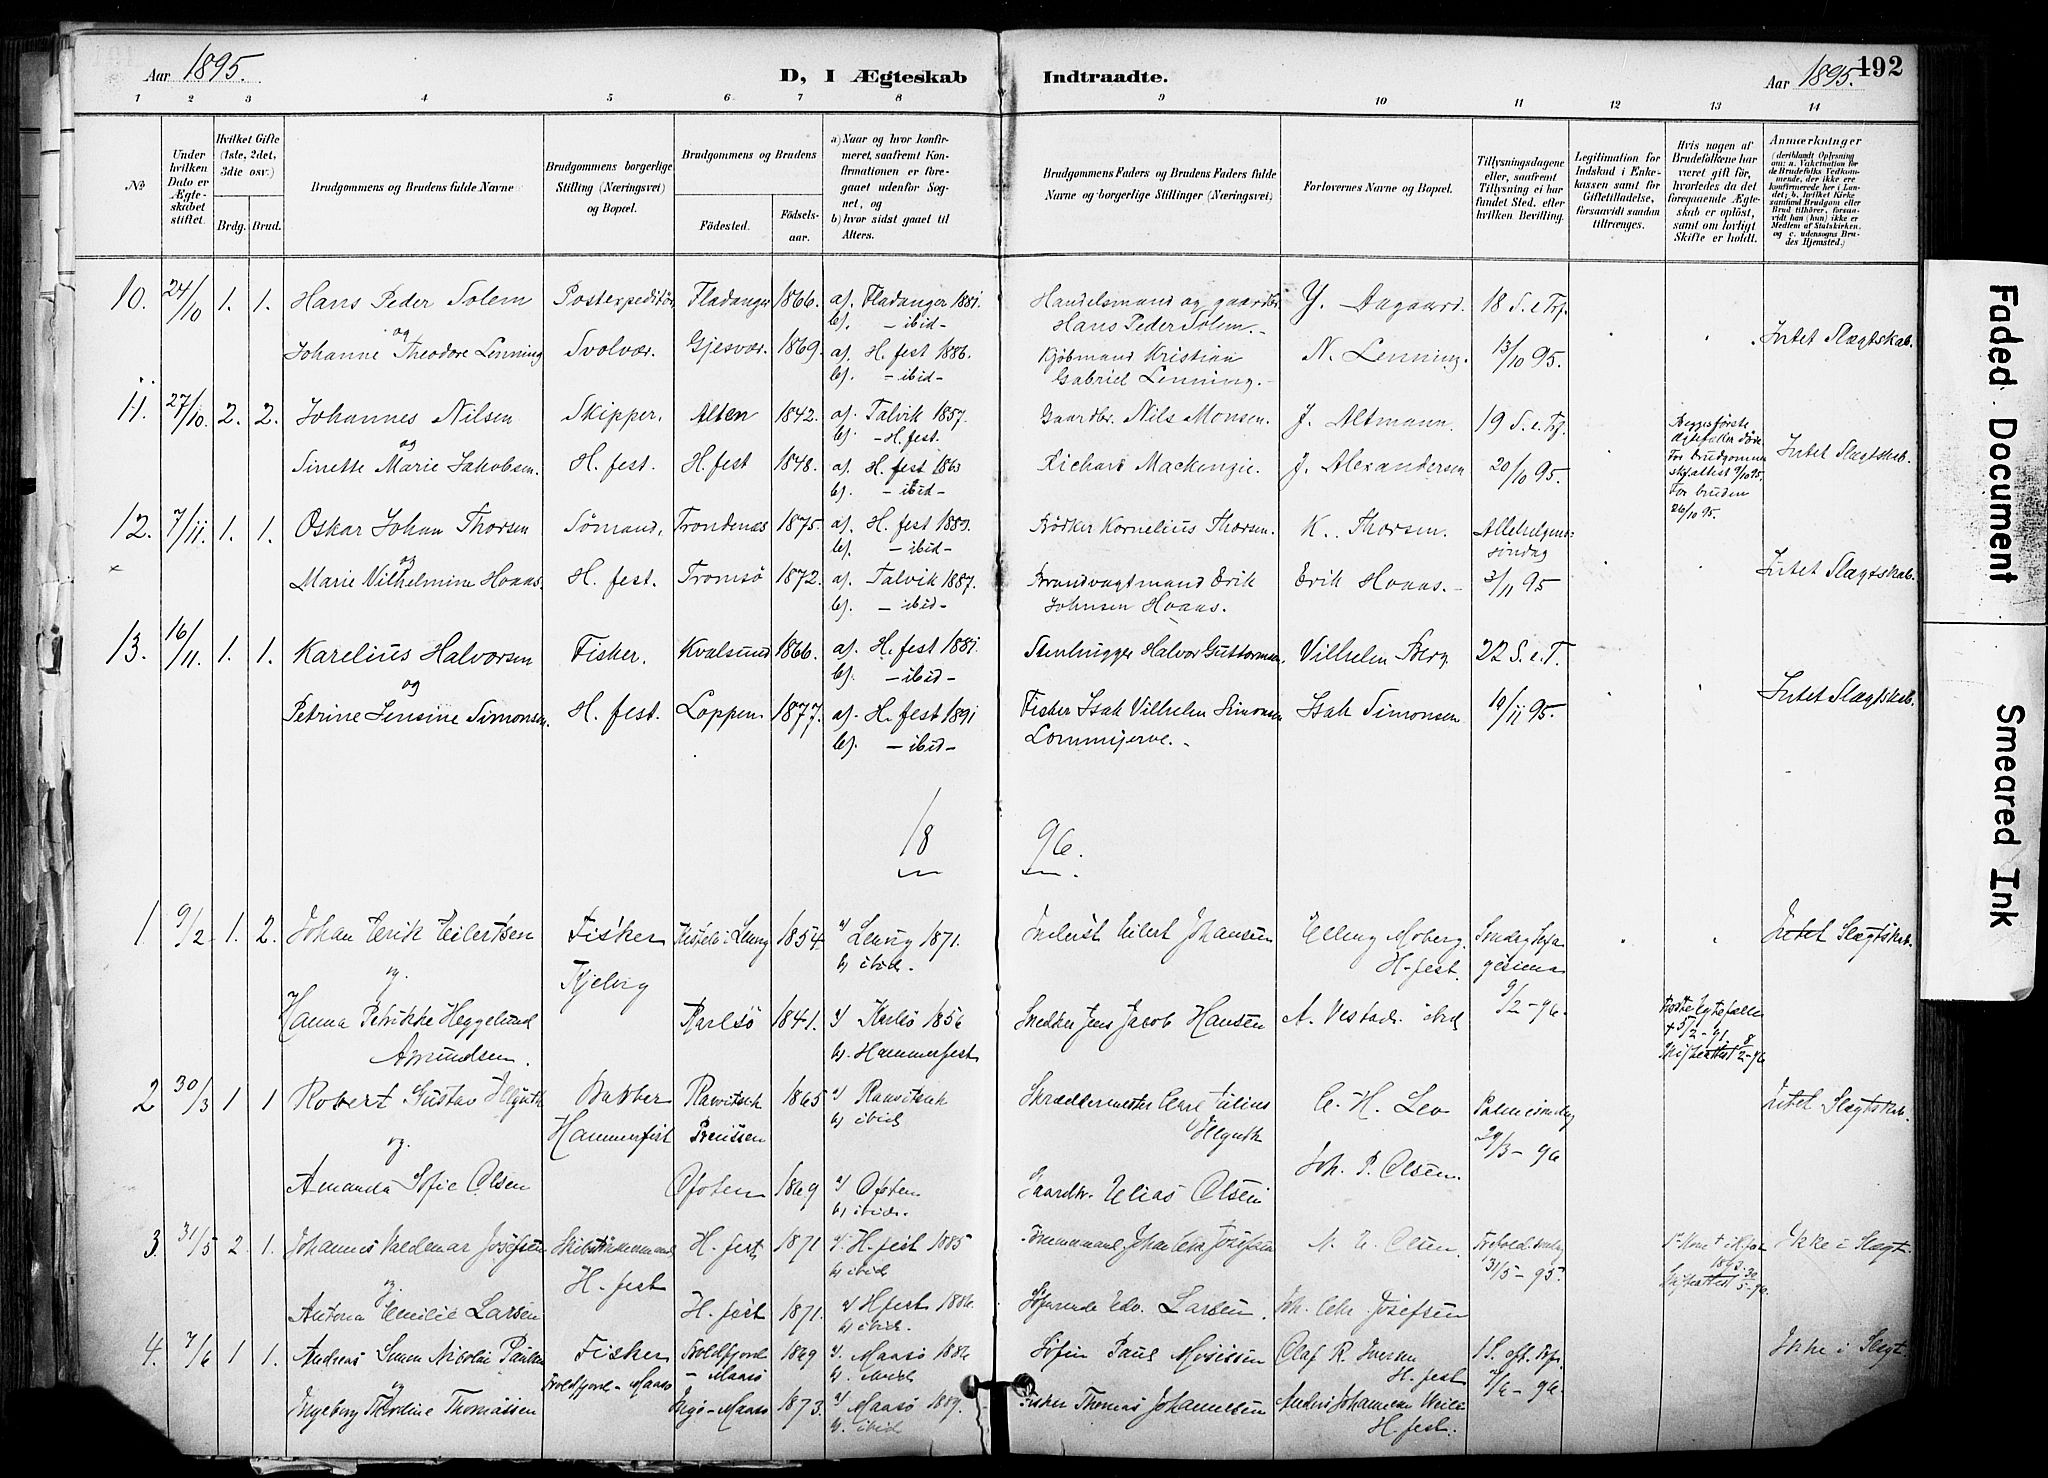 Aar 1895.
D, I Ægteskab Indtraadte.
Aar 1895. 192
1 2 3 4 5 6 7 8 9 10 11 12 13 14
№
Under hvilken Dato er Ægteskabet stiftet.
Hvilket Gifte (1ste, 2det, 3die osv.)
Brdg. Brud.
Brudgommens og Brudens fulde Navne
Brudgommens borgerlige Stilling (Næringsvei) og Bopæl.
Brudgommens og Brudens
Fødested. Fødselsaar.
a) Naar og hvor konfirmeret, saafremt Konfirmationen er foregaaet udenfor Sognet, og
b) hvor sidst gaaet til Alters.
Brudgommens Faders og Brudens Faders fulde Navne og borgerlige Stillinger (Næringsvei)
Forlovernes Navne og Bopæl.
Tillysningsdagene eller, saafremt Tillysning ei har fundet Sted, efter hvilken Bevilling.
Legitimation for Indskud i Enkekassen samt for Giftetilladelse, forsaavidt saadan tiltrænges.
Hvis nogen af Brudefolkene har været gift før, hvorledes da det foregaaende Ægteskab er opløst, samt om lovligt Skifte er holdt.
Anmærkninger
10. 24/10 1. 1. Hans Peder Solem Postexpeditør Fladanger 1866. a). Fladanger 1881. Handelsmand og gaardbr. Y. Aagaard. 18 S. e Trf.
og b). - ibid - Hans Peder Solem.
Johanne Theodore Lenning Svolvær. Gjesvær. 1869. a). H. fest 1886. Kjøbmand Kristian N. Lenning. 13/10 95. Intet Slægtskab.
b). - ibid - Gabriel Lenning.
11. 27/10. 2. 2. Johannes Nilsen Skipper. Alten 1842. a). Talvik 1857. Gaardbr. Nils Monsen. J. Altmann. 19 S. e. Trf.
og b). - H. fest.
Sinette Marie Jakobsen. H. fest. H. fest 1848. a). H. fest 1863 Richard Mackenzie. J. Alexandersen 20/10 95. For brudgommen skifattest 9/10 95. For bruden 26/10 95. Intet Slægtskab.
b). - ibid -
12. 7/11. 1. 1. Oskar Johan Thorsen Sømand, Trondenæs 1875. a). H. fest 1889. Bødker Kornelius Thorsen. K. Thorsen. Allehelgenssøndag
og b). - ibid -
Marie Vilhelmine Hoaas. H. fest. Tromsø 1872. a). Talvik 1887. Brandvagtmand Erik Erik Hoaas. 3/11 95 Intet Slægtskab.
b). - ibid - Johnsen Hoaas.
13. 16/11. 1. 1. Karelius Halvorsen Fisker. Kvalsund 1866. a). H. fest 1881. Stenhugger Halvor Guttormsen. Vilhelm Berg. 22 S. e. T.
og b). - ibid -
Petrine Jensine Simonsen. H. fest. Loppen. 1877. a). H. fest 1891 Fisker Isak Vilhelm Simonsen Isak Simonsen 10/11 95. Intet Slægtskab.
b). - ibid -
18 96.
1 9/2 1. 2. Johan Erik Eilertsen Fisker 1854. a) 1871. Inderst Eilert Johansen Elling Moberg. Intet Slægtskab.
og. b) ibid. H-fest.
Hanna Petrikke Heggelund Karlsø 1841. a) Karlsø 1856 Snedker Jens Jacob Hansen A. Vestad. ibid 9/2-96.
Amundsen. b). Hammerfest
2 30/3 1 1 Robert Gustav Bakker Rawitsch 1865 a) Rawitsch Skræddermester Carl Julius C. H. Leo Palmesøndag Intet Slægtskab.
og. Hammerfest Preussen b) ibid 29/3-96
Amanda Sofie Olsen Ofoten 1869 a) Ofoten Gaardbr. Elias Olsen Joh. P. Olsen.
b) ibid.
3. 31/5 2. 1. Johannes Valdemar Josefsen Skibstømmermand H. fest 1871 a). H. fest 1885 Tømmermand Johan Chr Josefsen N. E. Olsen. 31/5-95. Ikke i Slægt.
og. H. fest b) ibid
Antona Emilie Larsen H. fest 1871. a) H fest 1886. Søfarende Edv. Larsen. Joh. Chr. Josefsen
b) ibid.
4. 7/6 1 1. Andreas Simon Nicolai Paulsen Fisker Troldfjord 1869 a). Maasø 1886 Paul Mosissen Olaf R. Iversen 1 S. eft. Trf. Ikke i Slægt.
og Troldfjord-Maasø - Maasø b). ibid H. fest 7/6-96
Ingeborg Thomassen Ingø-Maasø 1873. a) Maasø 1889. Fisker Thomas Johannesen
b). ibid H. fest.
Faded Document
Smeared Ink